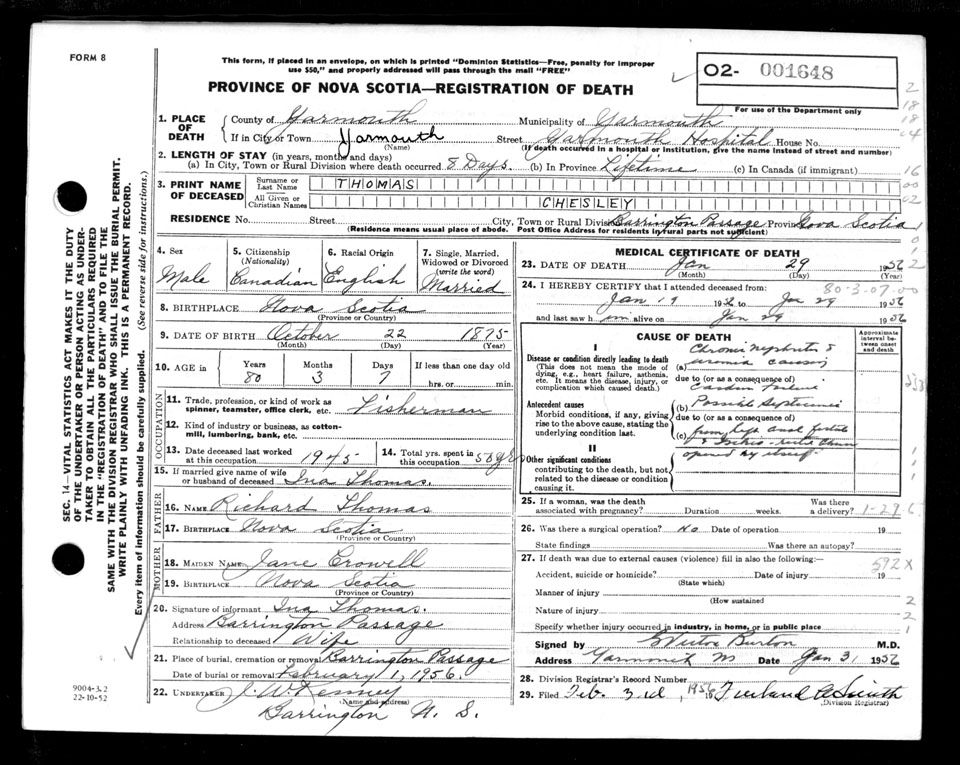 FORM 8
This form, if placed in an envelope, on which is printed "Dominion Statistics—Free, penalty for improper
use $50," and properly addressed will pass through the mail "FREE"
PROVINCE OF NOVA SCOTIA—REGISTRATION OF DEATH
02- 001648
For use of the Department only
1. PLACE OF DEATH
County of Yarmouth Municipality of Yarmouth
If in City or Town Yarmouth Street Yarmouth Hospital House No.
(Name) (If death occurred in a hospital or institution, give the name instead of street and number)
2. LENGTH OF STAY (in years, months and days)
(a) In City, Town or Rural Division where death occurred 8 Days. (b) In Province Lifetime (c) In Canada (if immigrant)
3. PRINT NAME OF DECEASED
Surname or Last Name THOMAS
All Given or Christian Names CHESLEY
RESIDENCE No. Street City, Town or Rural Division Barrington Passage Province Nova Scotia
(Residence means usual place of abode. Post Office Address for residents in rural parts not sufficient)
4. Sex Male
5. Citizenship (Nationality) Canadian
6. Racial Origin English
7. Single, Married, Widowed or Divorced (write the word) Married
8. BIRTHPLACE Nova Scotia
(Province or Country)
9. DATE OF BIRTH October 22 1875
(Month) (Day) (Year)
10. AGE in Years Months Days If less than one day old
80 3 7 hrs. or min.
OCCUPATION
11. Trade, profession, or kind of work as spinner, teamster, office clerk, etc. Fisherman
12. Kind of industry or business, as cotton-mill, lumbering, bank, etc.
13. Date deceased last worked at this occupation 1945
14. Total yrs. spent in this occupation 50 yrs
15. If married give name of wife or husband of deceased Ina Thomas.
FATHER
16. NAME Richard Thomas
17. BIRTHPLACE Nova Scotia
(Province or Country)
MOTHER
18. MAIDEN NAME Jane Crowell
19. BIRTHPLACE Nova Scotia
(Province or Country)
20. Signature of informant Ina Thomas.
Address Barrington Passage
Relationship to deceased Wife
21. Place of burial, cremation or removal Barrington Passage
Date of burial or removal February 1, 1956.
22. UNDERTAKER J. W. Kenney
(Name and address)
Barrington N. S.
MEDICAL CERTIFICATE OF DEATH
23. DATE OF DEATH Jan 29 1956
(Month) (Day) (Year)
24. I HEREBY CERTIFY that I attended deceased from:
80-3-07-00
Jan 19 1956 to Jan 29 1956
and last saw him alive on Jan 29 1956
CAUSE OF DEATH
Approximate interval between onset and death
I
Disease or condition directly leading to death
(This does not mean the mode of dying, e.g., heart failure, asthenia, etc. It means the disease, injury, or complication which caused death.)
(a) Chronic Nephritis &
uremia causing
due to (or as a consequence of)
Antecedent causes
Morbid conditions, if any, giving rise to the above cause, stating the underlying condition last.
(b)
due to (or as a consequence of)
(c)
II
Other significant conditions
contributing to the death, but not related to the disease or condition causing it.
25. If a woman, was the death associated with pregnancy? Duration weeks. Was there a delivery? 1-29 6
26. Was there a surgical operation? No Date of operation 19
State findings Was there an autopsy?
27. If death was due to external causes (violence) fill in also the following: 592X
Accident, suicide or homicide? Date of injury 19
(State which)
Manner of injury
(How sustained
Nature of injury
Specify whether injury occurred in industry, in home, or in public place
Signed by Burton M.D.
Address Yarmouth NS Date Jan 31 1956
28. Division Registrar's Record Number
29. Filed Feb. 3rd, 1956
(Division Registrar)
SEC. 14—VITAL STATISTICS ACT MAKES IT THE DUTY
OF THE UNDERTAKER OR PERSON ACTING AS UNDER-
TAKER TO OBTAIN ALL THE PARTICULARS REQUIRED
IN THE "REGISTRATION OF DEATH" AND TO FILE THE
SAME WITH THE DIVISION REGISTRAR WHO SHALL ISSUE THE BURIAL PERMIT.
WRITE PLAINLY WITH UNFADING INK. THIS IS A PERMANENT RECORD.
Every item of information should be carefully supplied. (See reverse side for instructions.)
9004-3.2
22-10-52